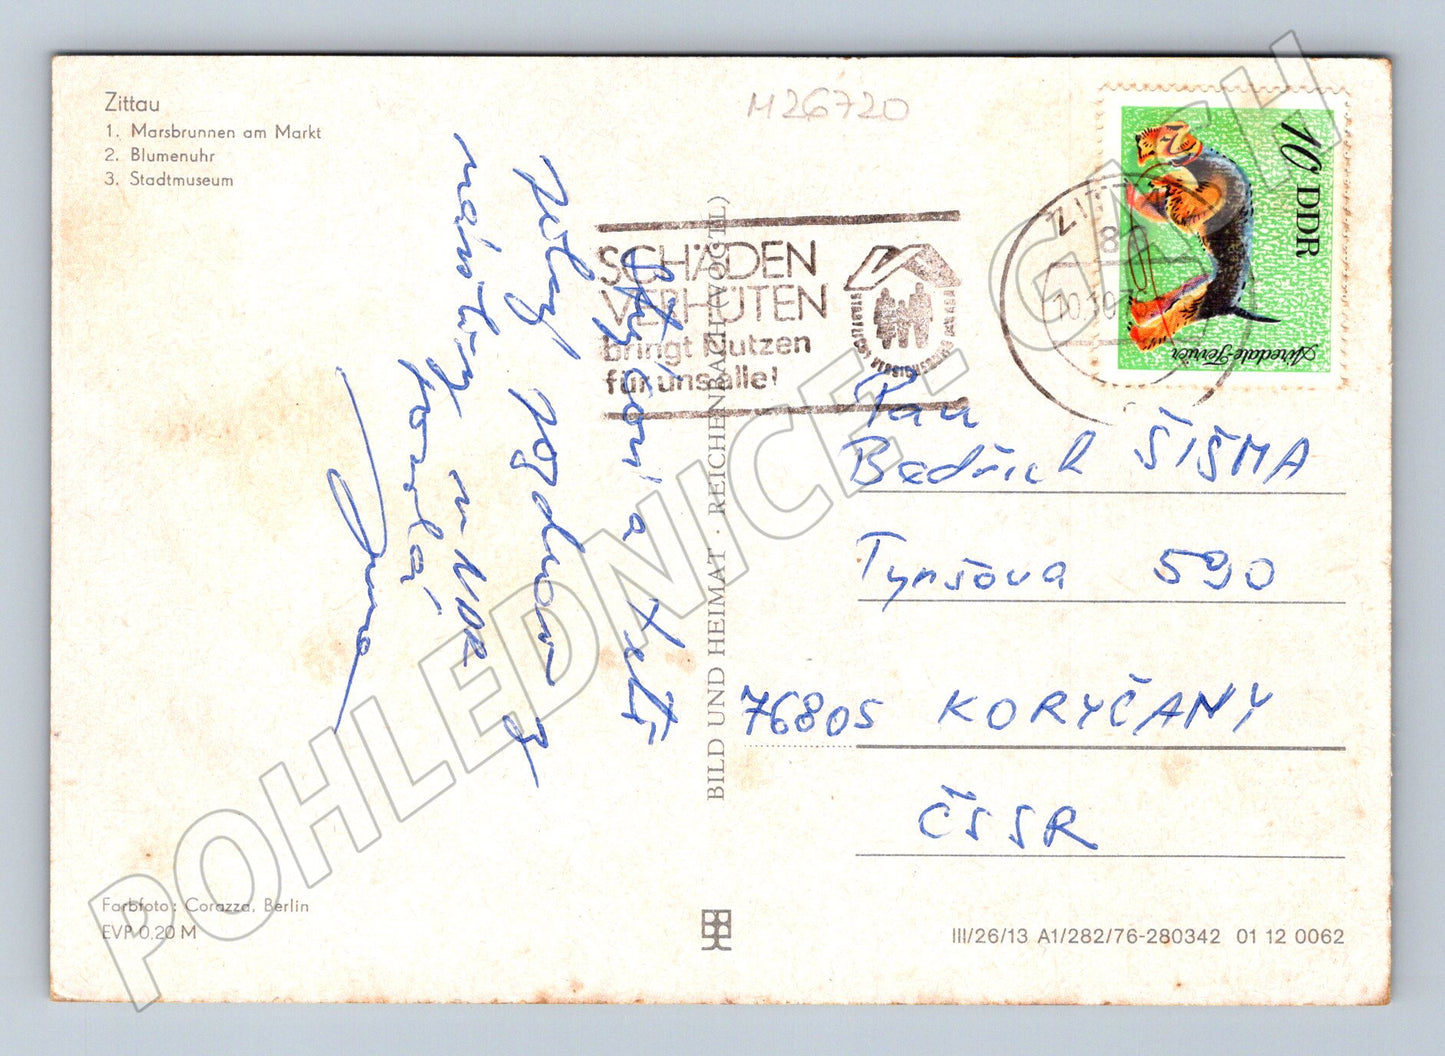 Zittau
1. Marsbrunnen am Markt
2. Blumenuhr
3. Stadtmuseum
M26720
10 DDR
Airedale-Terrier
SCHÄDEN
VERHÜTEN
bringt Nutzen
für uns alle!
a
z
návštěvy v NDR
Pan
Bedřich ŠIŠMA
Tyršova 590
76805 KORYČANY
ČSSR
BILD UND HEIMAT · REICHENBACH (VOGTL)
Farbfoto: Corazza, Berlin
EVP 0,20 M
III/26/13 A1/282/76-280342 01 12 0062
POHLEDNICE.GASH